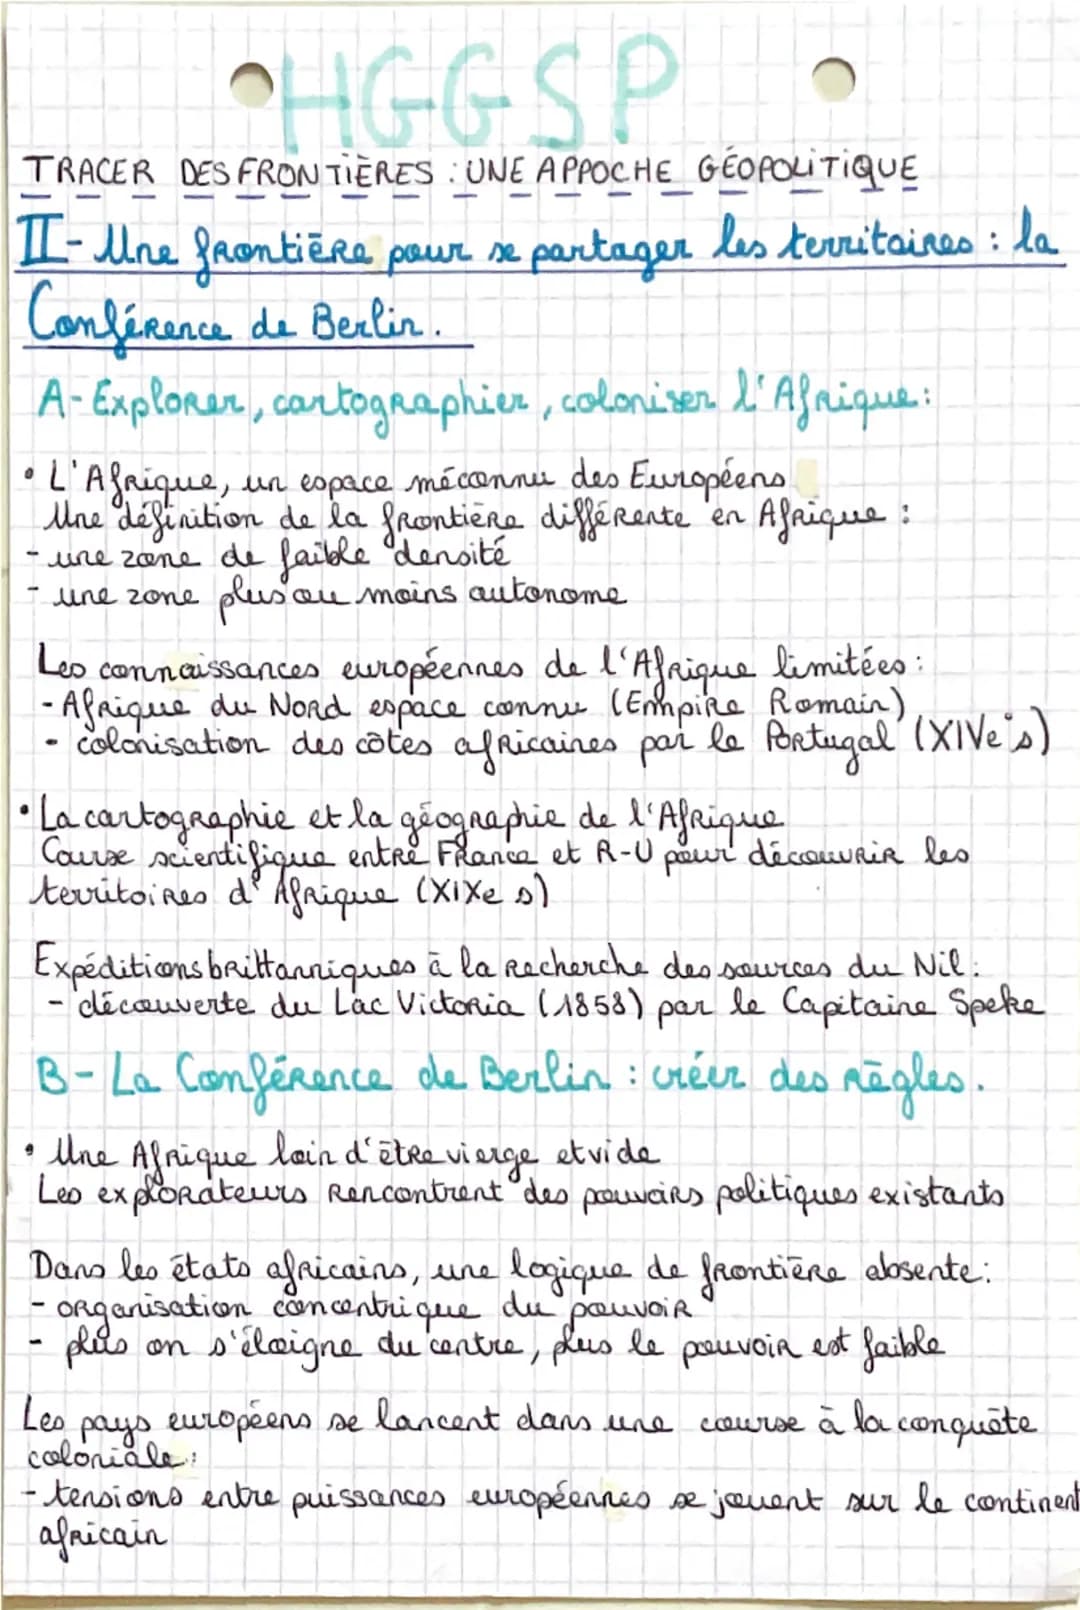 HGGSP
TRACER DES FRONTIÈRES : UNE APPOCHE GÉOPOLITIQUE
II - Une frontière pour se partager les territoires : la
Conférence de Berlin.
A - Explorer, cartographier, coloniser l'Afrique :
• L'Afrique, un espace méconnu des Européens
Une définition de la frontière différente en Afrique :
- une zone de faible densité
- une zone plus ou moins autonome
Les connaissances européennes de l'Afrique limitées :
- Afrique du Nord espace connu (Empire Romain)
- colonisation des côtes africaines par le Portugal (XIVe s)
• La cartographie et la géographie de l'Afrique
Course scientifique entre France et R-U pour découvrir les
territoires d'Afrique (XIXe s)
Expéditions brittanniques à la recherche des sources du Nil :
- découverte du Lac Victoria (1858) par le Capitaine Speke
B - La Conférence de Berlin : créer des règles.
• Une Afrique loin d'être vierge et vide
Les explorateurs rencontrent des pouvoirs politiques existants
Dans les états africains, une logique de frontière absente :
- organisation concentrique du pouvoir
- plus on s'éloigne du centre, plus le pouvoir est faible
Les pays européens se lancent dans une course à la conquête
coloniale :
- tensions entre puissances européennes se jouent sur le continent
africain